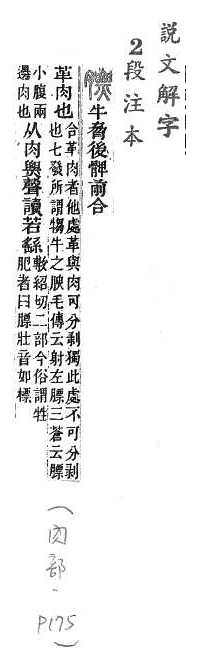 説文解字
2段注本
牛脅後髀前合
革肉也合革肉者他處革與肉可分剥獨此處不可分剥
也七發所謂犓牛之腴毛傳云射左膘三蒼云膘
小腹兩
邊肉也
从肉㶾聲讀若繇
敷紹切二部今俗謂牲
肥者曰膘壯音如標
(肉部.
P175)